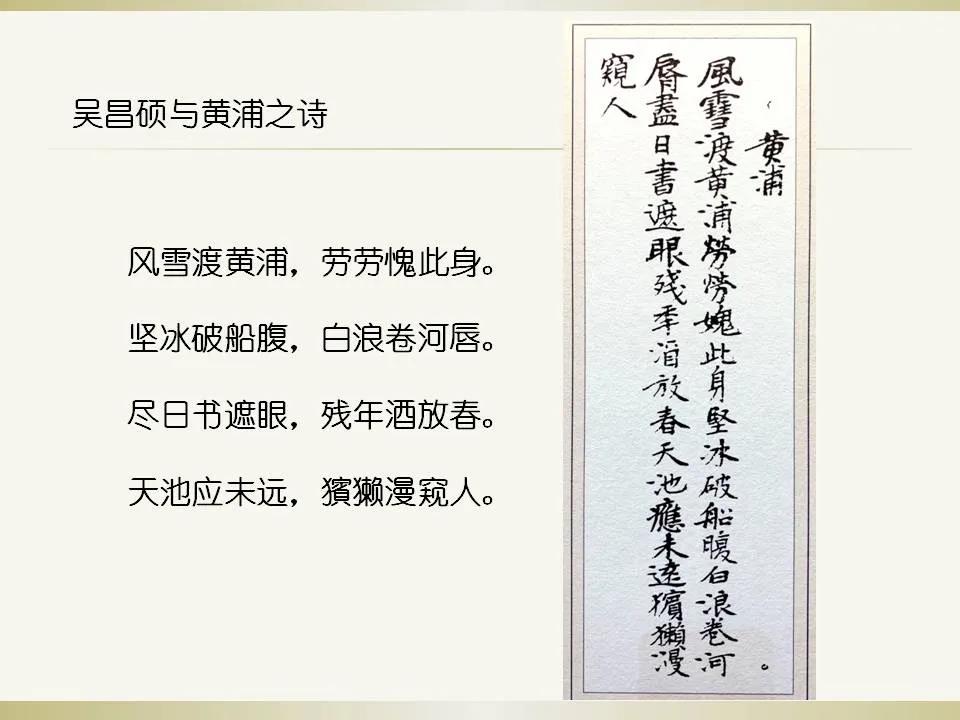 吴昌硕与黄浦之诗
风雪渡黄浦，劳劳愧此身。
坚冰破船腹，白浪卷河唇。
尽日书遮眼，残年酒放春。
天池应未远，獱獭漫窥人。
黄浦
風雪渡黄浦勞勞媿此身堅冰破船腹白浪卷河
脣盡日書遮眼残季酒放春天池應未遠獱獺漫
窺人